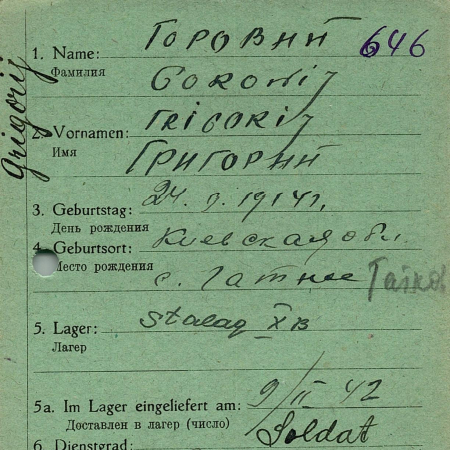 1. Name: ГОРОВИЙ 646
Фамилия GOROWIJ
Grigorij
2. Vornamen: GRIGORIJ
Имя ГРИГОРИЙ
3. Geburtstag: 1914г.
День рождения
4. Geburtsort: Киевская обл.
Место рождения с. Гатнее
5. Lager: Stalag XB
Лагер
5a. Im Lager eingeliefert am: 9/II 42
Доставлен в лагер (число)
6. Dienstgrad: Soldat